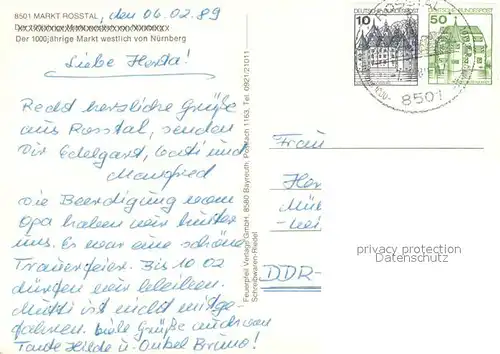 8501 MARKT ROSSTAL, den 06.02.89
Der 1000jährige Markt westlich von Nürnberg
Liebe Herta!
Recht herzliche Grüße
aus Rosstal, senden
Dir Edelgard, Gati und
Manfred
Die Beerdigung vom
Opa haben wir hinter
uns. Es war eine schöne
Trauerfeier. Bis 10 02
dürfen wir bleiben.
Mutti ist nicht mitge-
fahren. Viele Grüße auch von
Tante Hilde u. Onkel Bruno!
Feuerpfeil Verlags GmbH, 8580 Bayreuth, Postfach 1163, Tel. 0921/21011
Schreibwaren-Riedel
DEUTSCHE BUNDESPOST
10
DEUTSCHE BUNDESPOST
50
8501
Frau
Her
Mül
DDR-
privacy protection
Datenschutz